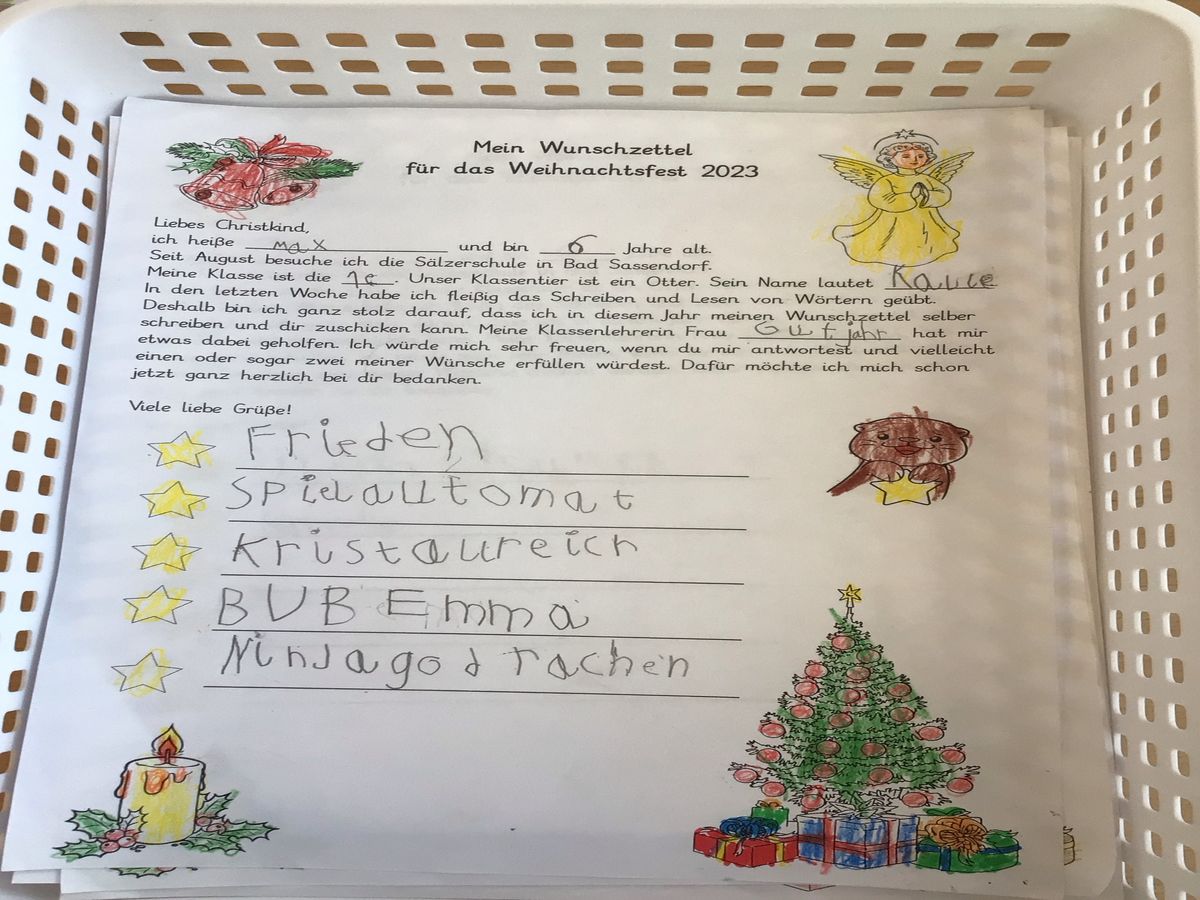 Mein Wunschzettel
für das Weihnachtsfest 2023
Liebes Christkind,
ich heiße max und bin 6 Jahre alt.
Seit August besuche ich die Sälzerschule in Bad Sassendorf.
Meine Klasse ist die 1c. Unser Klassentier ist ein Otter. Sein Name lautet
In den letzten Woche habe ich fleißig das Schreiben und Lesen von Wörtern geübt.
Deshalb bin ich ganz stolz darauf, dass ich in diesem Jahr meinen Wunschzettel selber
schreiben und dir zuschicken kann. Meine Klassenlehrerin Frau Gutjahr hat mir
etwas dabei geholfen. Ich würde mich sehr freuen, wenn du mir antwortest und vielleicht
einen oder sogar zwei meiner Wünsche erfüllen würdest. Dafür möchte ich mich schon
jetzt ganz herzlich bei dir bedanken.
Viele liebe Grüße!
Frieden
Spielautomat
Kristallreich
BVB Emma
Ninjago drachen